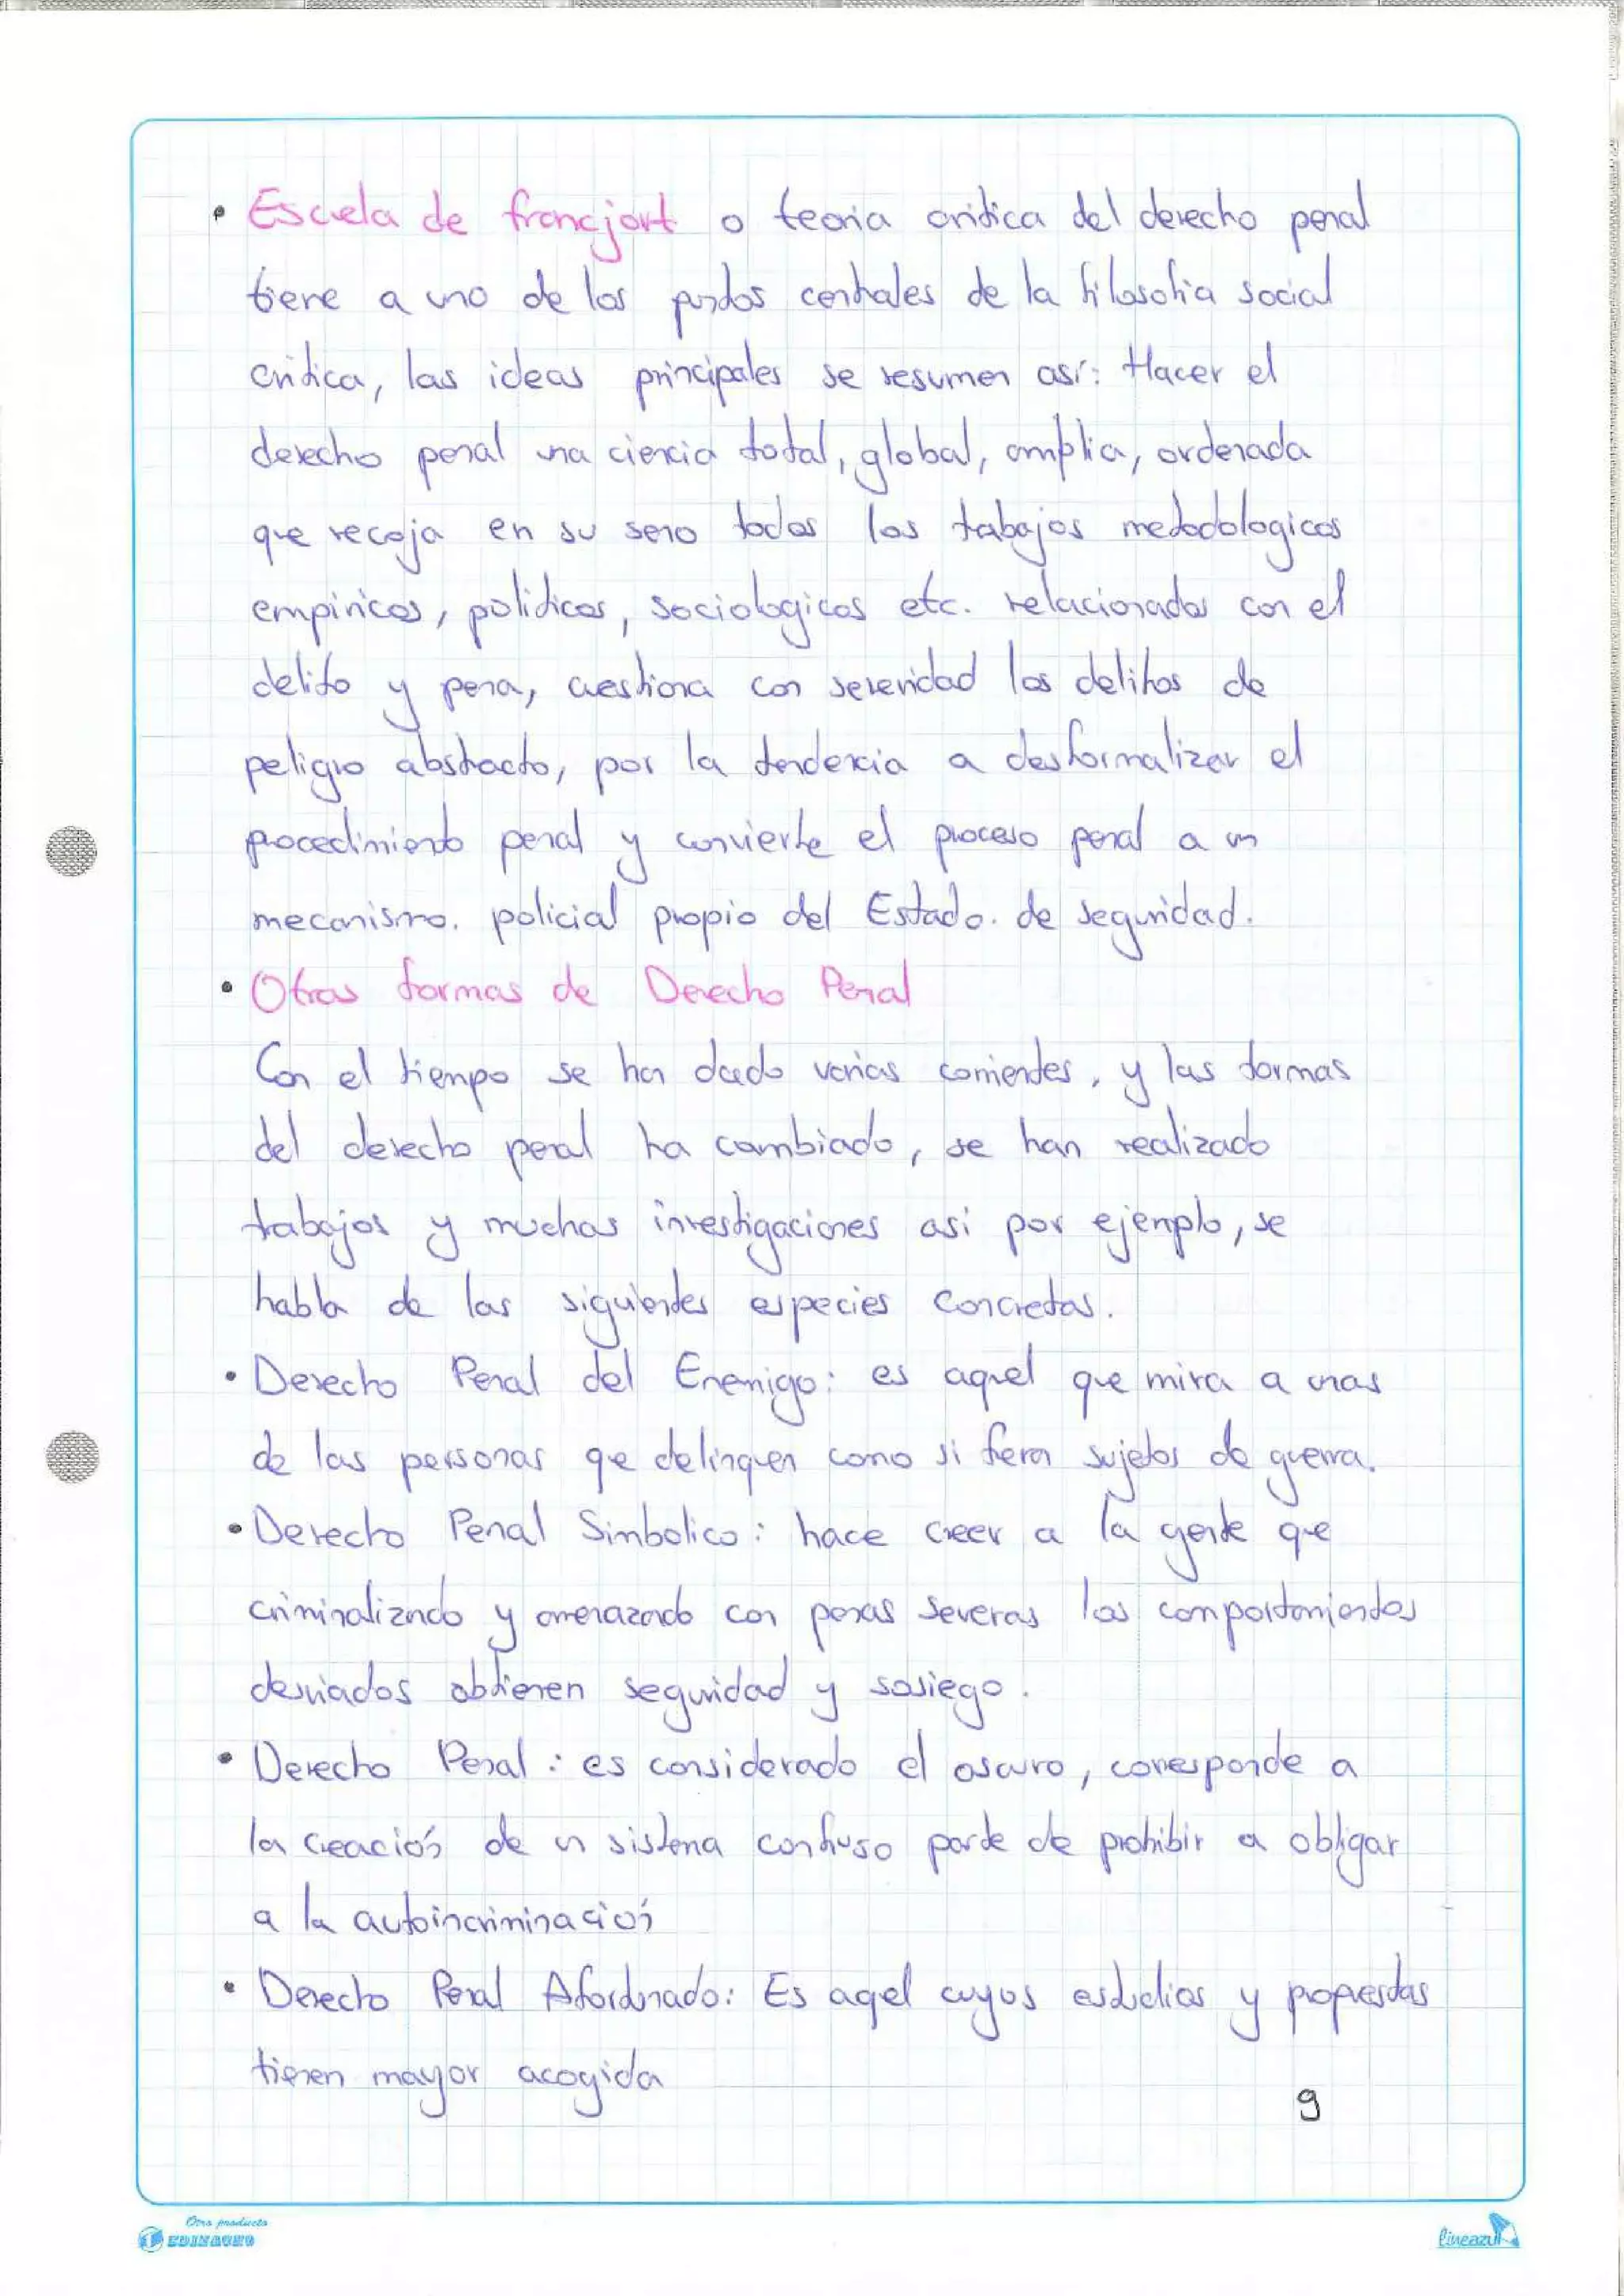 • Escuela de francjort o teoria critica del derecho penal
tiene a uno de los puntos centrales de la filosofia social
critica, las ideas principales se resumen así: Hacer el
derecho penal una ciencia total, global, amplia, ordenada
que recoja en su seno todos los trabajos metodologicos
empiricos, politicos, sociologicos etc. relacionados con el
delito y pena, cuestiona con severidad los delitos de
peligro abstracto, por la tendencia a desformalizar el
procedimiento penal y convierte el proceso penal a un
mecanismo. policial propio del Estado. de seguridad.
• Otras formas de Derecho Penal
Con el tiempo se han dado varias corrientes, y las formas
del derecho penal ha cambiado, se han realizado
trabajos y muchas investigaciones asi por ejemplo, se
habla de las siguientes especies concretas.
• Derecho Penal del Enemigo: es aquel que mira a unas
de las personas que delinquen como si fuera sujetos de guerra.
• Derecho Penal Simbolico: hace creer a la gente que
criminalizndo y amenazando con penas severas los comportamientos
desviados obtienen seguridad y sosiego.
• Derecho Penal: es considerado el oscuro, corresponde a
la creación de un sistema confuso parte de prohibir a obligar
a la autoincriminación
• Derecho Penal Afortunado: Es aqel cuyos estudios y propuestas
tienen mayor acogida
9
Otro producto
EDINACHO lineazul